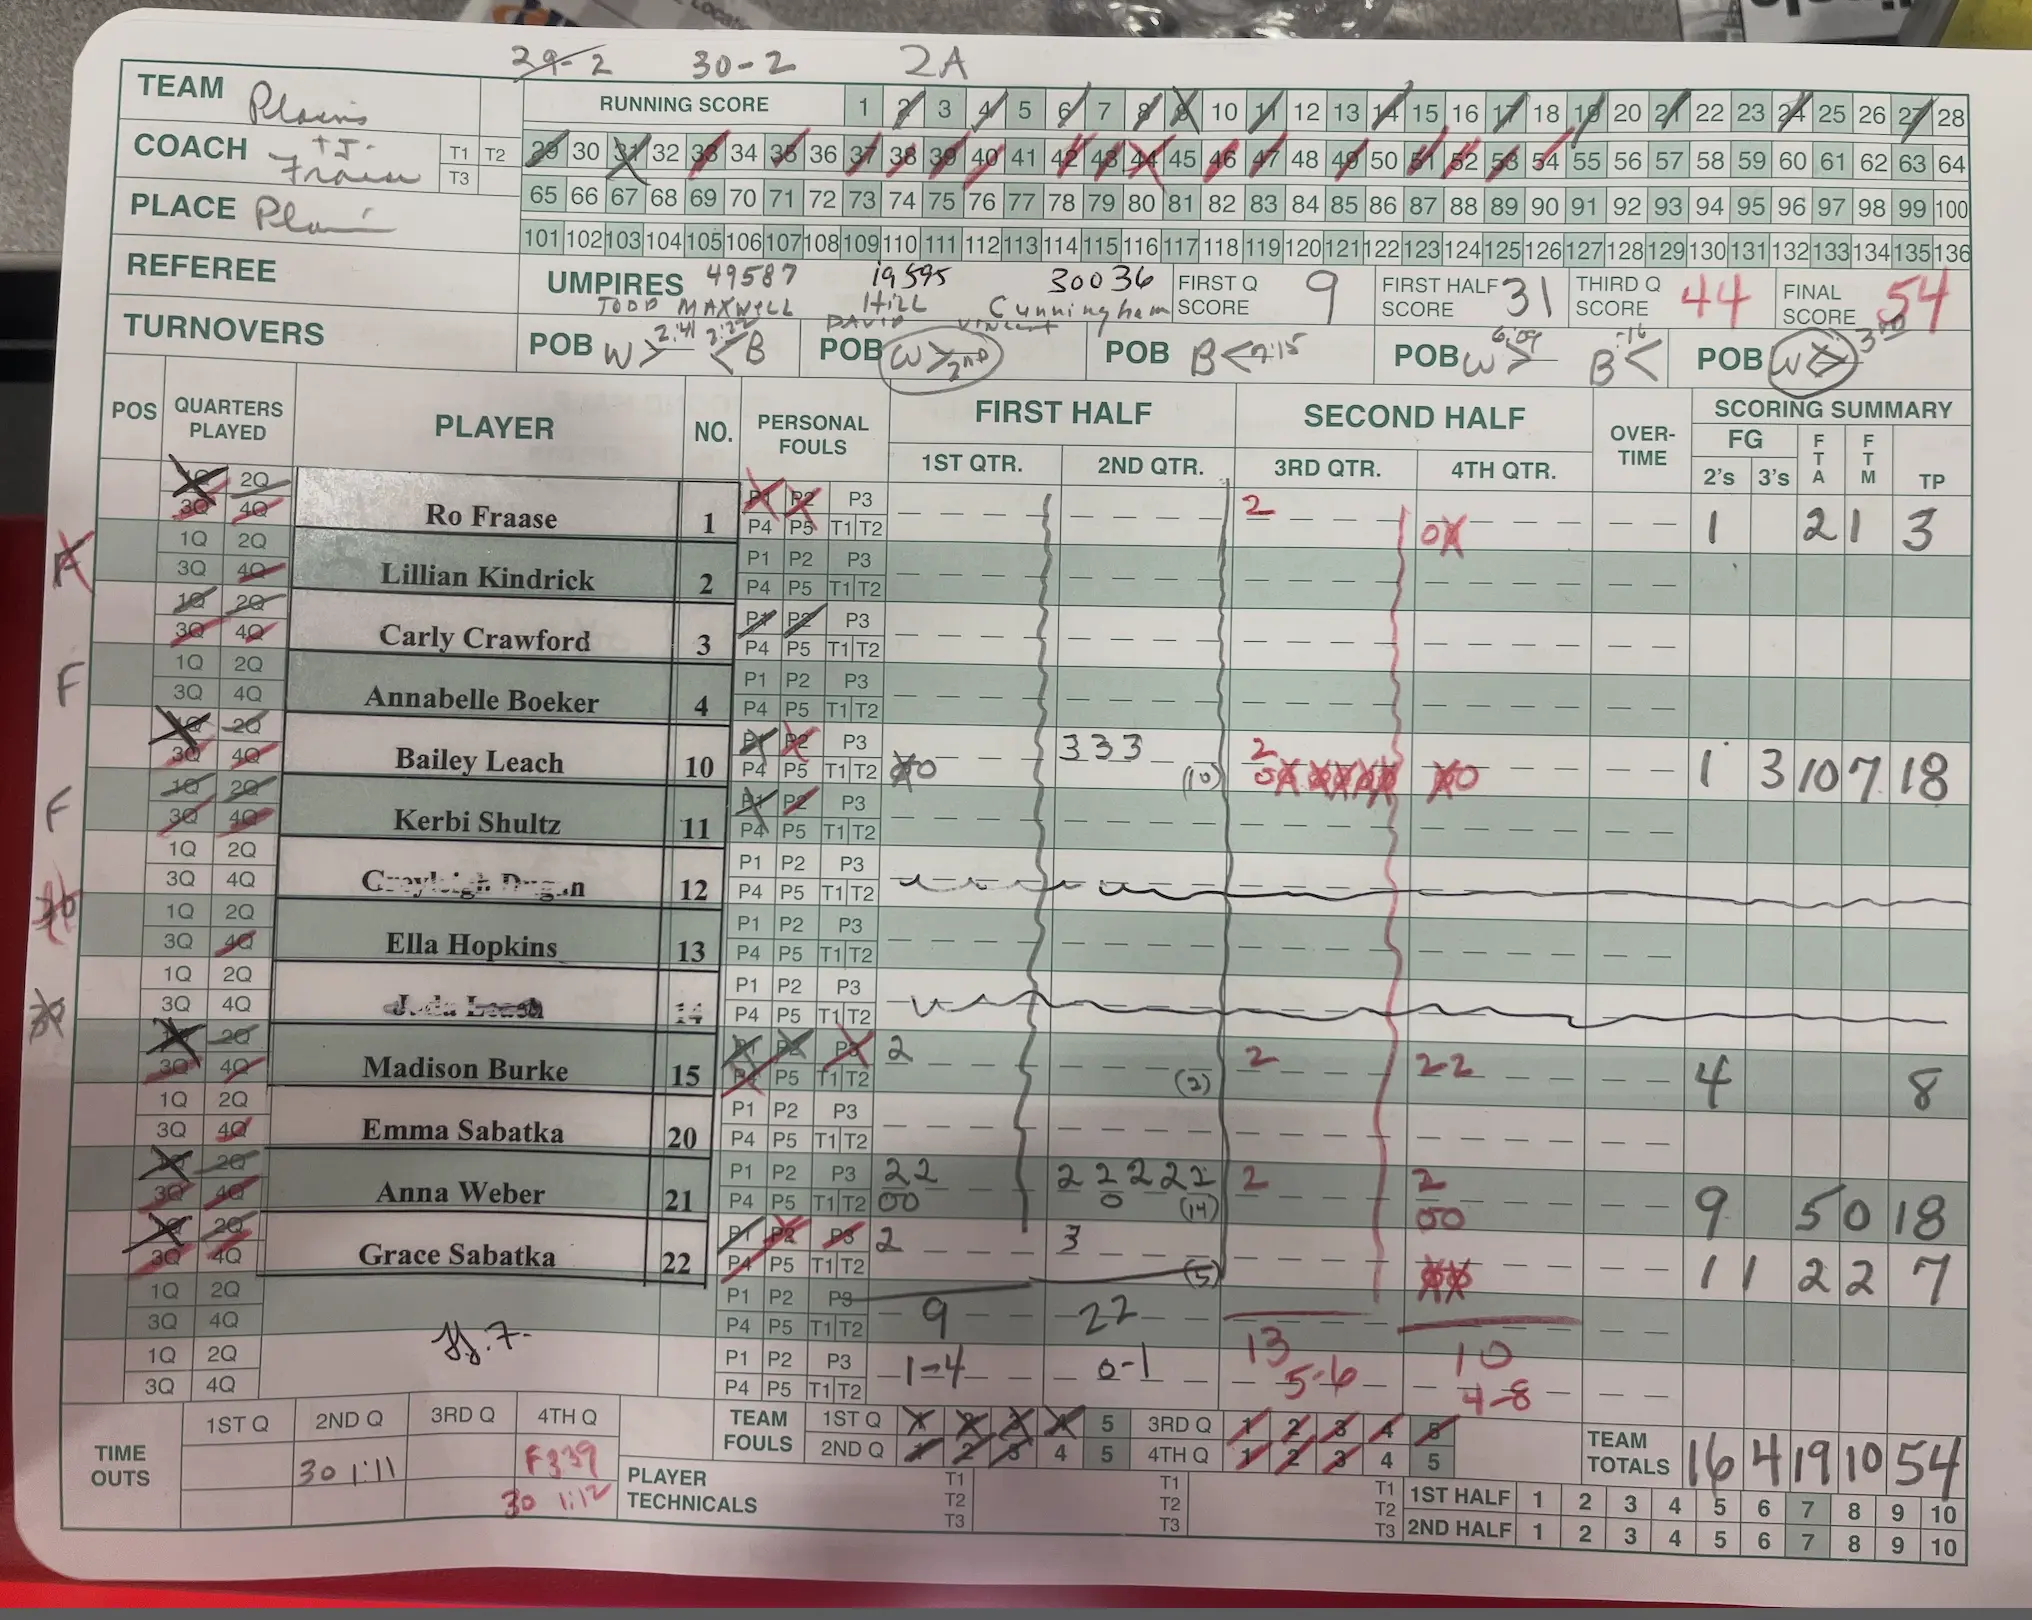 29-2 30-2 2A
TEAM Plains
RUNNING SCORE 1 2 3 4 5 6 7 8 9 10 11 12 13 14 15 16 17 18 19 20 21 22 23 24 25 26 27 28
COACH TJ. T1 T2 T3
29 30 31 32 33 34 35 36 37 38 39 40 41 42 43 44 45 46 47 48 49 50 51 52 53 54 55 56 57 58 59 60 61 62 63 64
PLACE
65 66 67 68 69 70 71 72 73 74 75 76 77 78 79 80 81 82 83 84 85 86 87 88 89 90 91 92 93 94 95 96 97 98 99 100
101 102 103 104 105 106 107 108 109 110 111 112 113 114 115 116 117 118 119 120 121 122 123 124 125 126 127 128 129 130 131 132 133 134 135 136
REFEREE
UMPIRES 49587 19595 30036
TODD MAXWELL Hill Cunningham
DAVID VINCENT
FIRST Q SCORE 9 FIRST HALF SCORE 31 THIRD Q SCORE 44 FINAL SCORE 54
TURNOVERS
POB W > 2:41 < B POB W > 2ND POB B < 7:15 POB W > 6:09 B < :16 POB W > 3RD
POS QUARTERS PLAYED PLAYER NO. PERSONAL FOULS FIRST HALF SECOND HALF OVER-TIME SCORING SUMMARY
1ST QTR. 2ND QTR. 3RD QTR. 4TH QTR. FG 2's 3's FTA FTM TP
1Q 2Q P1 P2 P3 2
3Q 4Q Ro Fraase 1 P4 P5 T1 T2 0X 1 2 1 3
1Q 2Q P1 P2 P3
3Q 4Q Lillian Kindrick 2 P4 P5 T1 T2
1Q 2Q P1 P2 P3
3Q 4Q Carly Crawford 3 P4 P5 T1 T2
F 1Q 2Q P1 P2 P3
3Q 4Q Annabelle Boeker 4 P4 P5 T1 T2
1Q 2Q P1 P2 P3 333 2
3Q 4Q Bailey Leach 10 P4 P5 T1 T2 X0 (10) 0XXXXX X0 1 3 10 7 18
F 1Q 2Q P1 P2 P3
3Q 4Q Kerbi Shultz 11 P4 P5 T1 T2
1Q 2Q P1 P2 P3
3Q 4Q 12 P4 P5 T1 T2
1Q 2Q P1 P2 P3
3Q 4Q Ella Hopkins 13 P4 P5 T1 T2
1Q 2Q P1 P2 P3
3Q 4Q 14 P4 P5 T1 T2
1Q 2Q P1 P2 P3 2 2 22
3Q 4Q Madison Burke 15 P4 P5 T1 T2 (2) 4 8
1Q 2Q P1 P2 P3
3Q 4Q Emma Sabatka 20 P4 P5 T1 T2
1Q 2Q P1 P2 P3 22 22222 2 2
3Q 4Q Anna Weber 21 P4 P5 T1 T2 00 0 (14) 00 9 5 0 18
1Q 2Q P1 P2 P3 2 3
3Q 4Q Grace Sabatka 22 P4 P5 T1 T2 (5) XX 1 1 2 2 7
1Q 2Q P1 P2 P3
3Q 4Q P4 P5 T1 T2 9 22 13 10
1Q 2Q P1 P2 P3 1-4 0-1 5-6 4-8
3Q 4Q P4 P5 T1 T2
TIME OUTS 1ST Q 2ND Q 3RD Q 4TH Q
30 1:11 F339
30 1:12
TEAM FOULS 1ST Q 1 2 3 4 5 3RD Q 1 2 3 4 5
2ND Q 1 2 3 4 5 4TH Q 1 2 3 4 5
TEAM TOTALS 16 4 19 10 54
PLAYER TECHNICALS T1 T2 T3 T1 T2 T3 T1 T2 T3
1ST HALF 1 2 3 4 5 6 7 8 9 10
2ND HALF 1 2 3 4 5 6 7 8 9 10